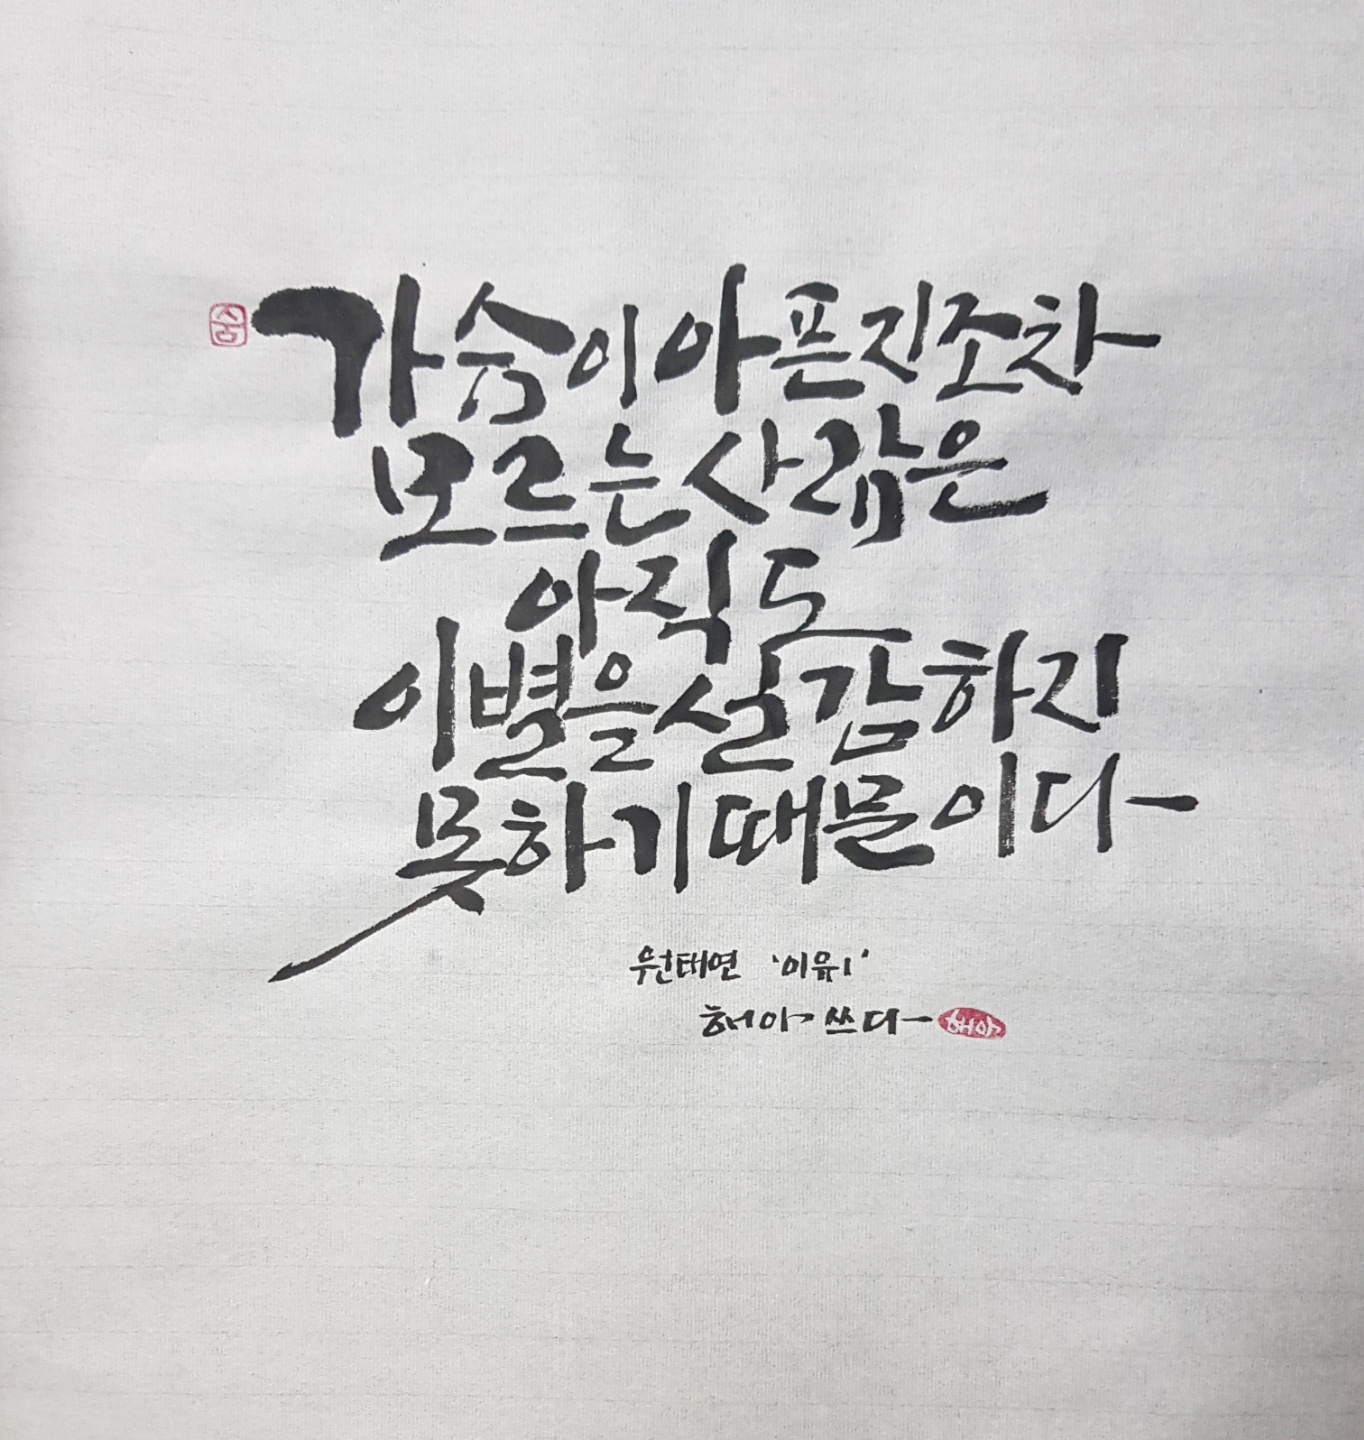 숨
가슴이 아픈지조차
모르는 사람은
아직도
이별을 실감하지
못하기 때문이다
원태연 '이유1'
해아 쓰다
해아